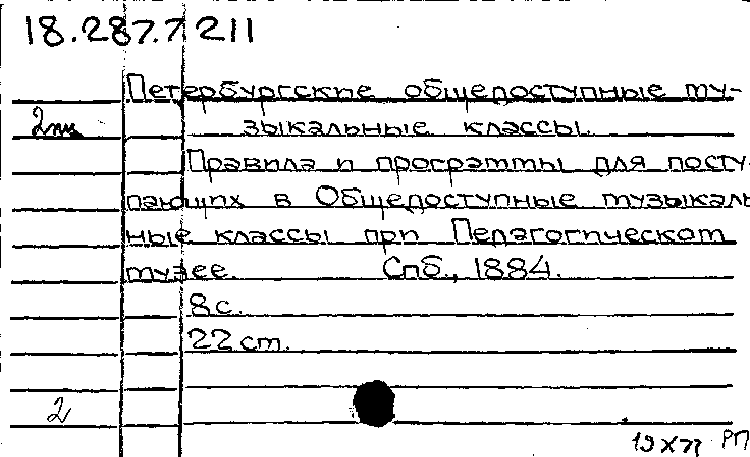 18.287.7 211
Петербургские общедоступные му-
зыкальные классы.
Правила и программы для посту-
пающих в Общедоступные музыкаль
ные классы при Педагогическом
музее. Спб., 1884.
8 с.
22 см.
2
19 X 77 РП